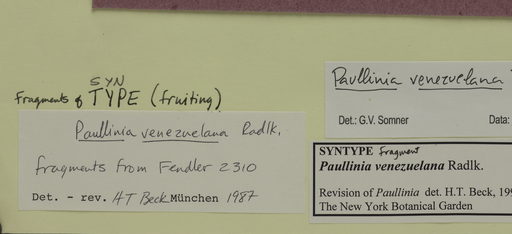 SYN
Fragments of TYPE (fruiting)
Paullinia venezuelana Radlk.
fragments from Fendler 2310
Det. - rev. HT Beck München 1987
Paullinia venezuelana
Det.: G.V. Somner Data:
SYNTYPE fragment
Paullinia venezuelana Radlk.
Revision of Paullinia det. H.T. Beck, 199
The New York Botanical Garden